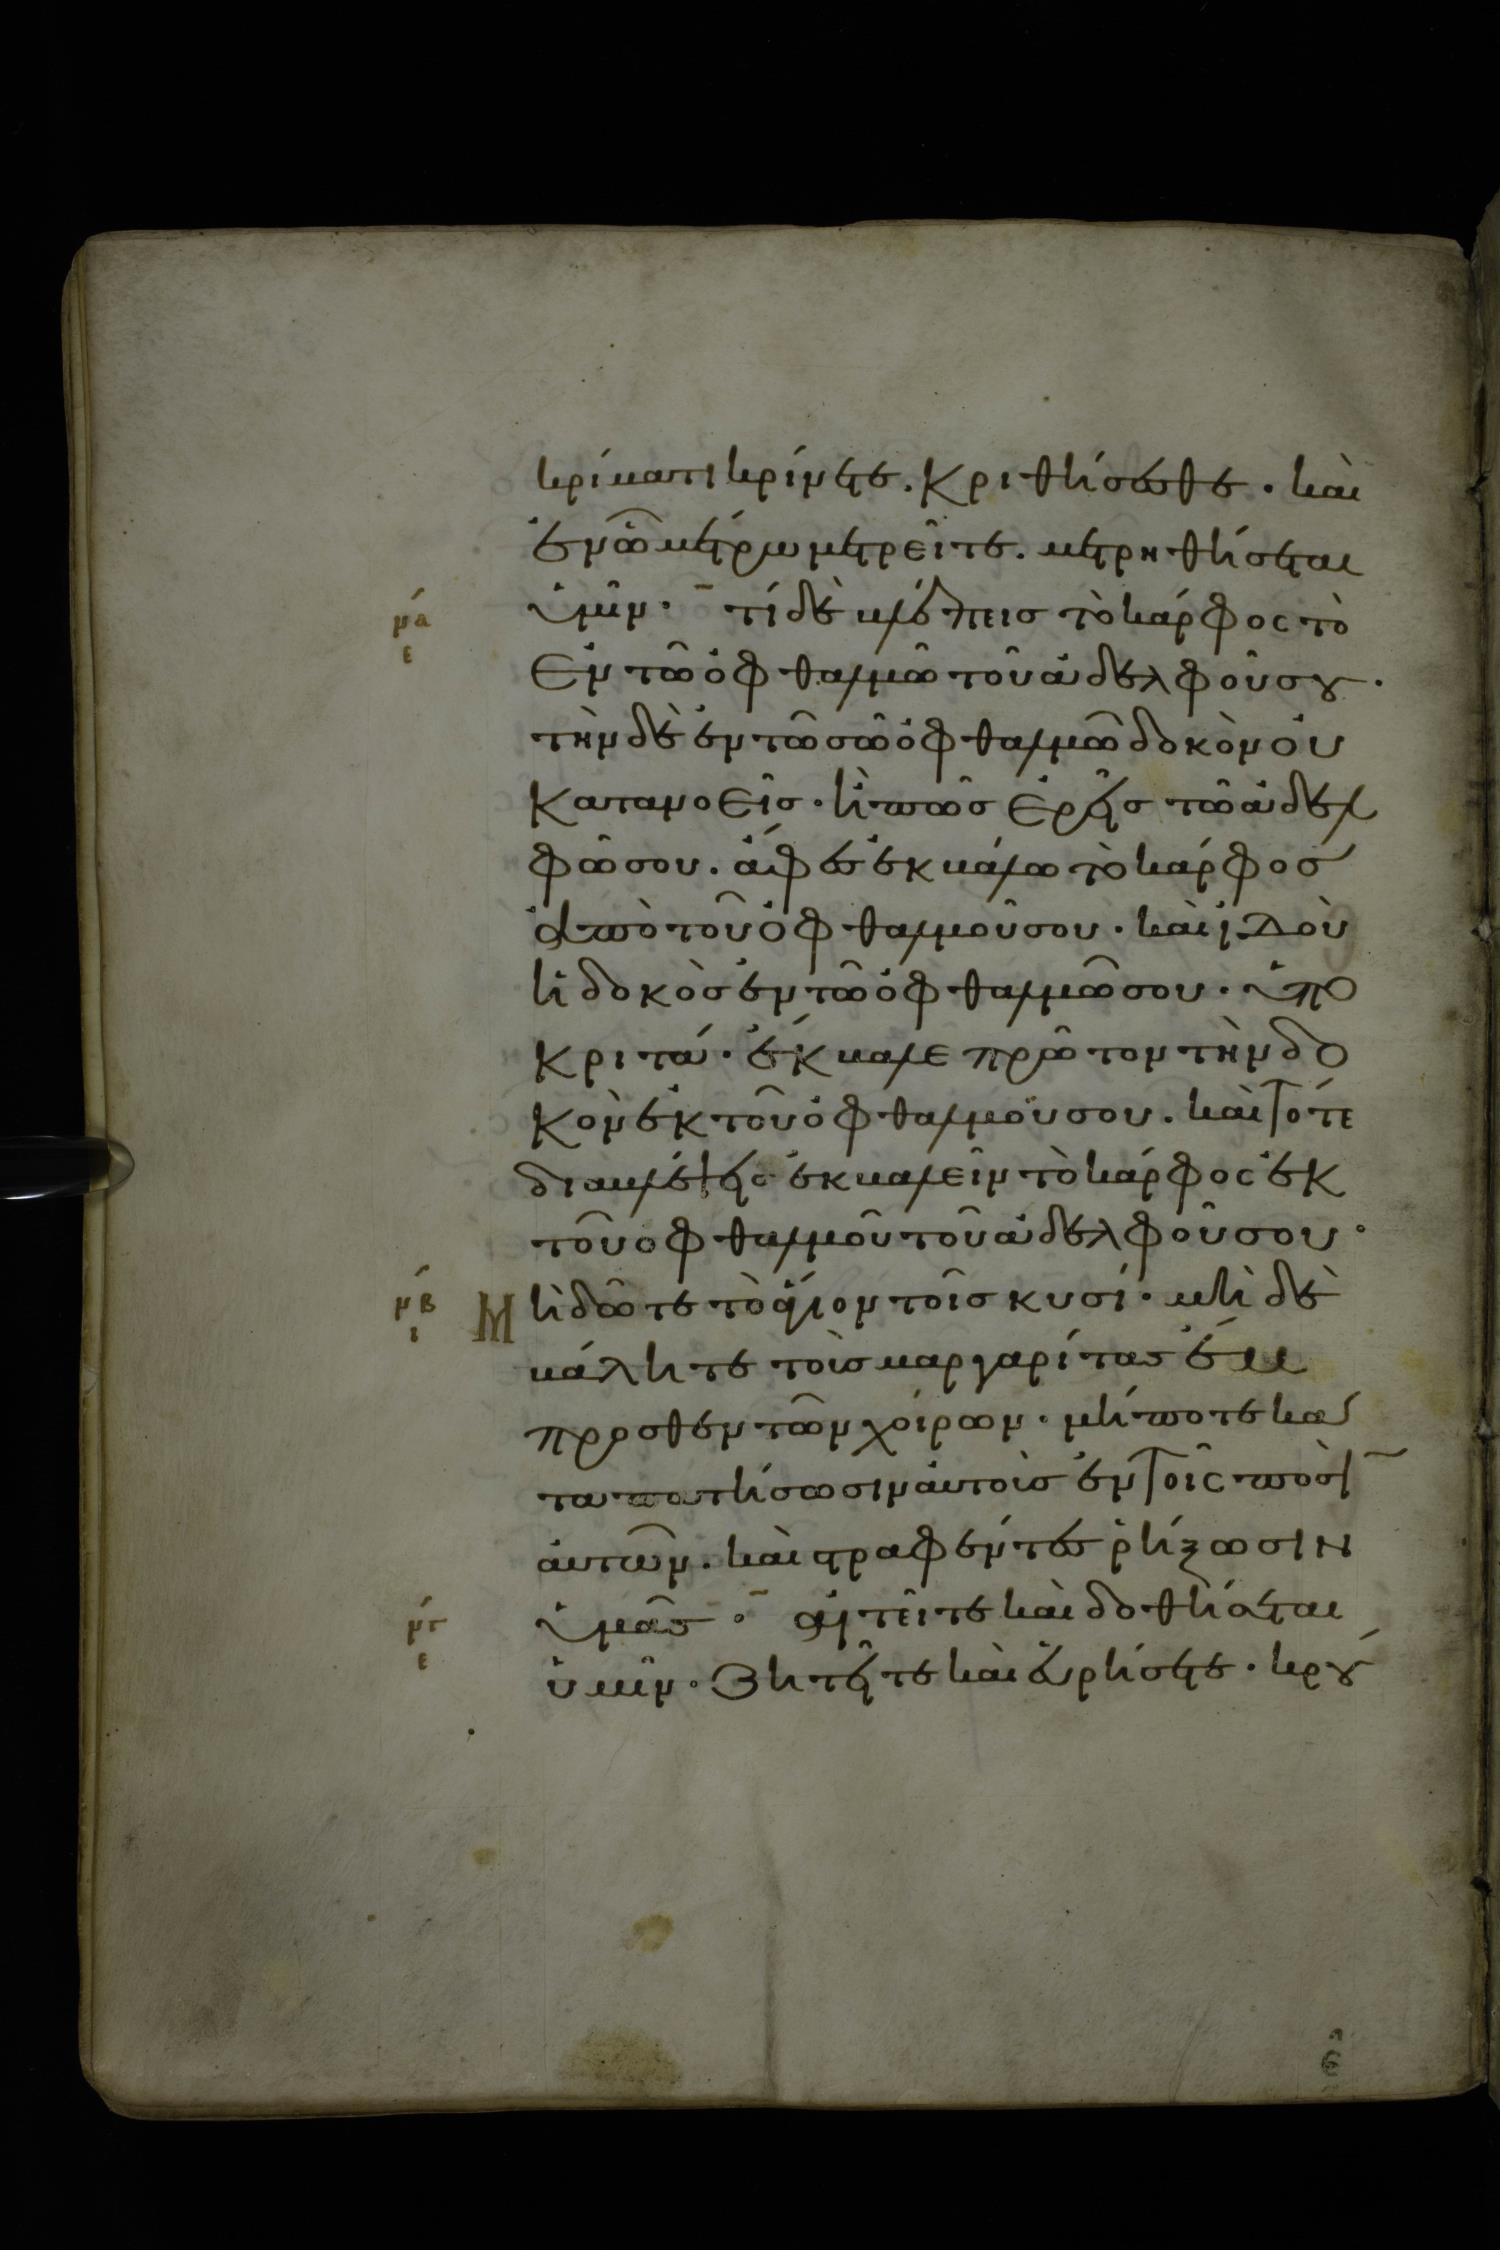 κρίματι κρίνετε. κριθήσεσθε· καὶ
ἐν ὧ μέτρω μετρεῖτε. μετρηθήσεται
ὑμῖν· τί δὲ βλέπεις τὸ κάρφος τὸ
ἐν τῶ ὀφθαλμῶ τοῦ ἀδελφοῦ σου·
τὴν δὲ ἐν τῶ σῶ ὀφθαλμῶ δοκὸν οὐ
κατανοεῖς· ἢ πῶς ἐρεῖς τῶ ἀδελ
φῶ σου. ἄφες ἐκβάλω τὸ κάρφος
ἀπὸ τοῦ ὀφθαλμοῦ σου· καὶ ἰδοὺ
ἡ δοκὸς ἐν τῶ ὀφθαλμῶ σου· ὑπο
κριτά· ἔκβαλε πρῶτον τὴν δο
κὸν ἐκ τοῦ ὀφθαλμοῦ σου. καὶ τότε
διαβλέψεις ἐκβαλεῖν τὸ κάρφος ἐκ
τοῦ ὀφθαλμοῦ τοῦ ἀδελφοῦ σου·
Μὴ δῶτε τὸ ἅγιον τοῖς κυσί· μὴ δὲ
βάλητε τοὺς μαργαρίτας ἔμ
προσθεν τῶν χοίρων· μήποτε κα
ταπατήσωσιν αὐτοὺς ἐν τοῖς ποσὶν
αὐτῶν. καὶ στραφέντες ῥήξωσιν
ὑμᾶς· αἰτεῖτε καὶ δοθήσεται
ὑμῖν· ζητεῖτε καὶ εὑρήσετε· κρού
μα
ε
μβ
ι
μγ
ε